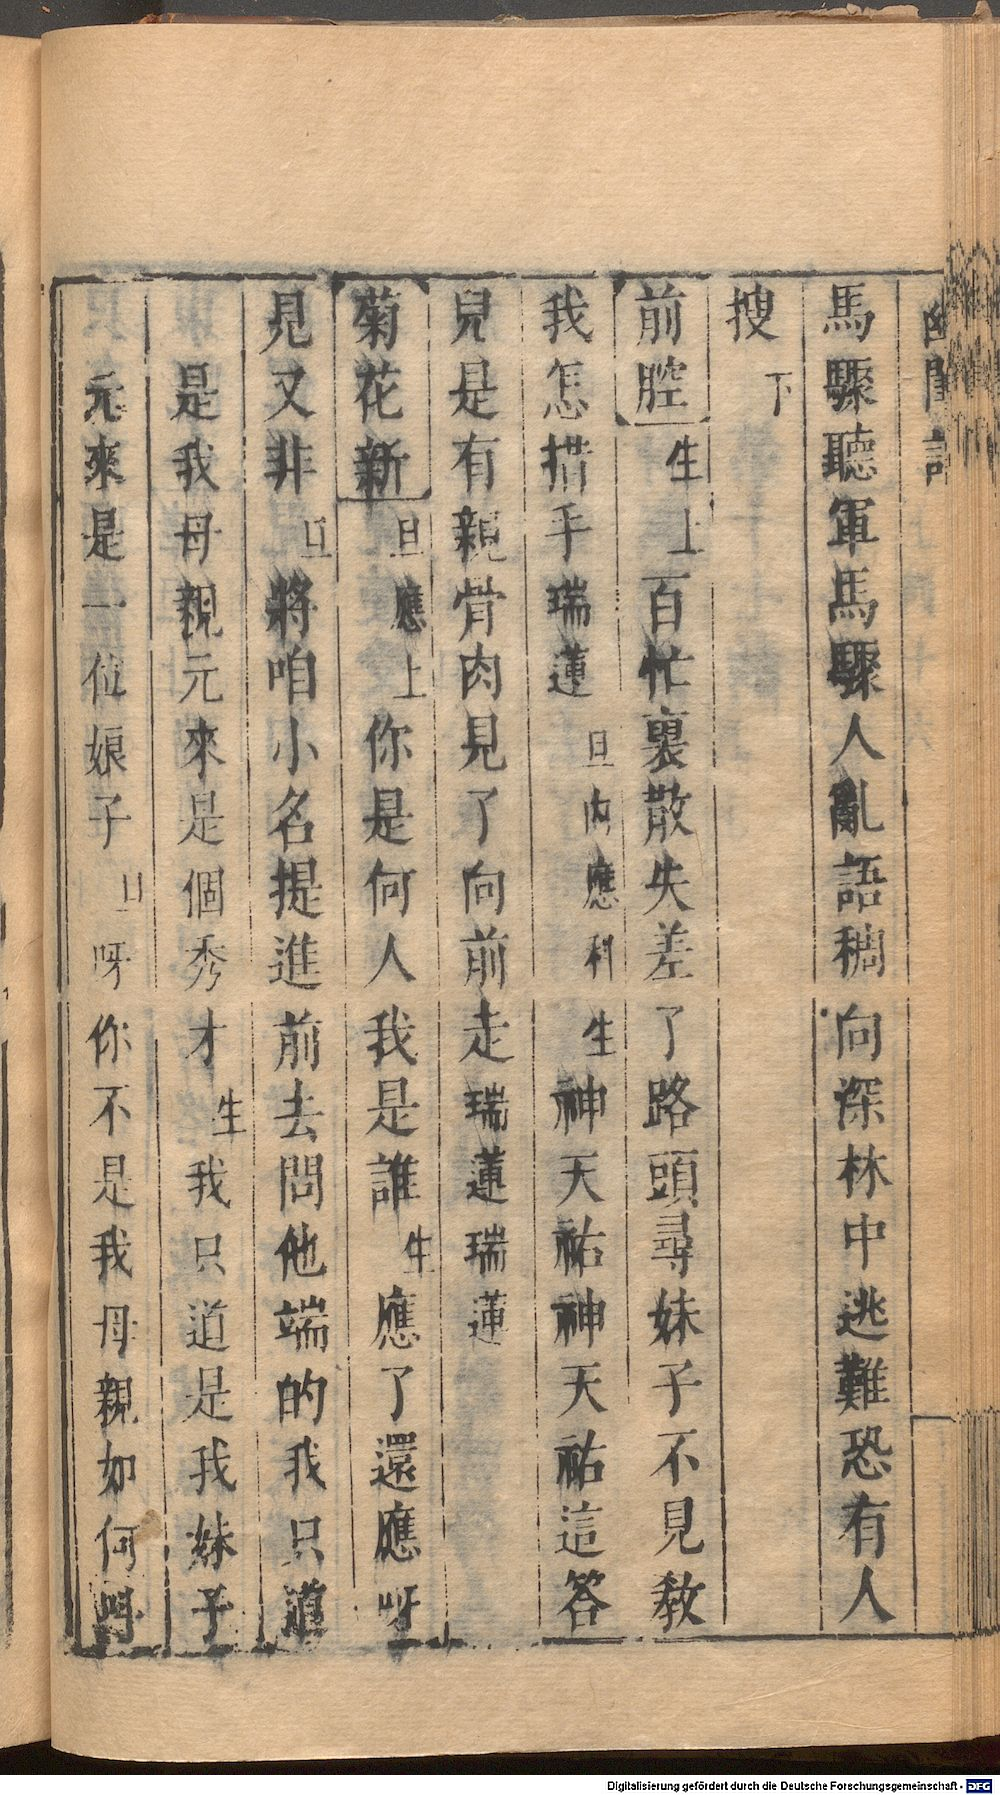 幽閨記
馬驟聽軍馬驟人亂語稠向深林中逃難恐有人
搜下
前腔生上百忙裏散失差了路頭尋妹子不見教
我怎措手瑞蓮旦內應科生神天祐神天祐這答
兒是有親骨肉見了向前走瑞蓮瑞蓮
菊花新旦應上你是何人我是誰生應了還應呀
見又非旦將咱小名提進前去問他端的我只道
是我母親元來是個秀才生我只道是我妹子
元來是一位娘子旦呀你不是我母親如何呌
Digitalisierung gefördert durch die Deutsche Forschungsgemeinschaft - DFG